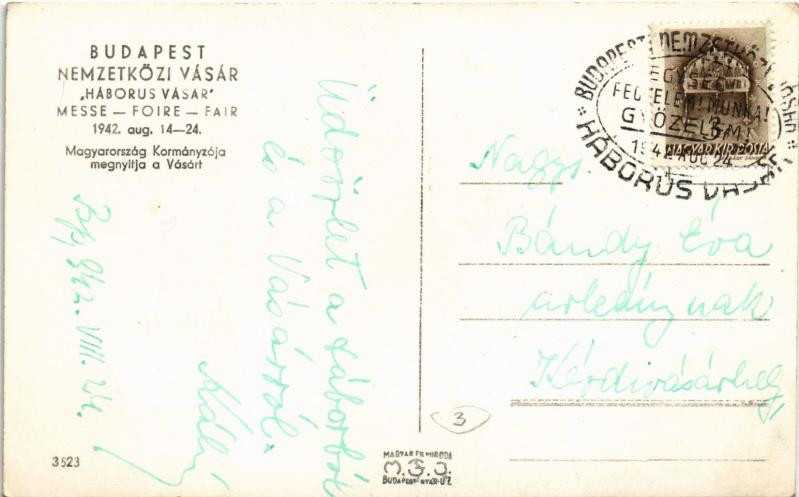 BUDAPEST
NEMZETKÖZI VÁSÁR
„HÁBORUS VÁSÁR"
MESSE — FOIRE — FAIR
1942. aug. 14—24.
Magyarország Kormányzója
megnyitja a Vásárt
Üdvözlet a táborból
és a Vásárról.
Bp, 942. VIII. 24.
3523
BUDAPESTI NEMZETKÖZI VÁSÁR
EGYSÉG
FEGYELEM! MUNKA!
GYŐZELEM!
1942 AUG 24
HÁBORUS VÁSÁR
MAGYAR KIR. POSTA
Nagys.
Bándy Éva
urleánynak
Kézdivásárhely
3
MAGYAR FILMIRODA
M.F.I.
BUDAPEST